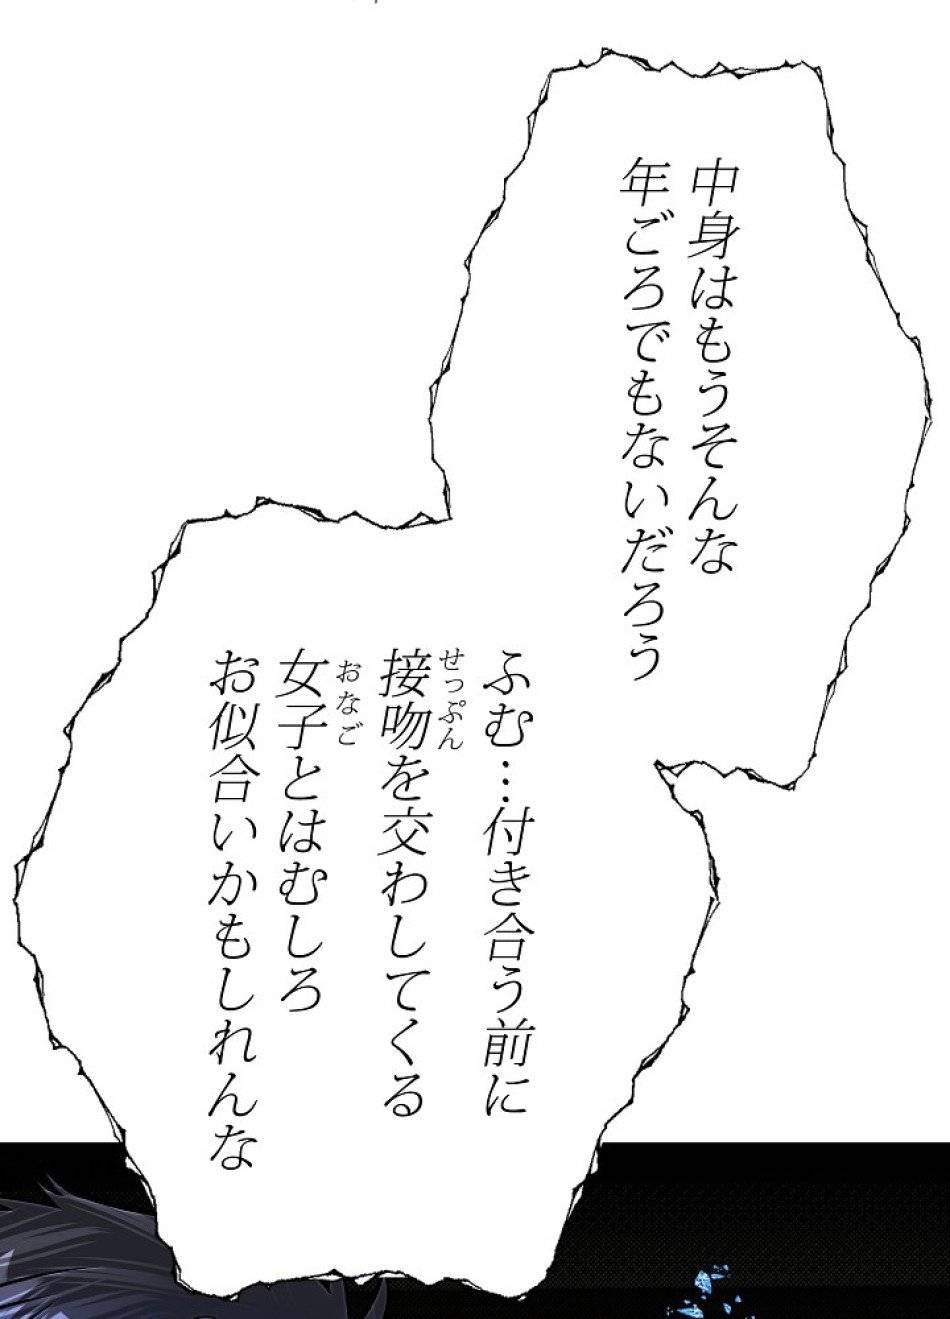 中身はもうそんな
年ごろでもないだろう
ふむ…付き合う前に
接吻を交わしてくる
せっぷん
女子とはむしろ
おなご
お似合いかもしれんな